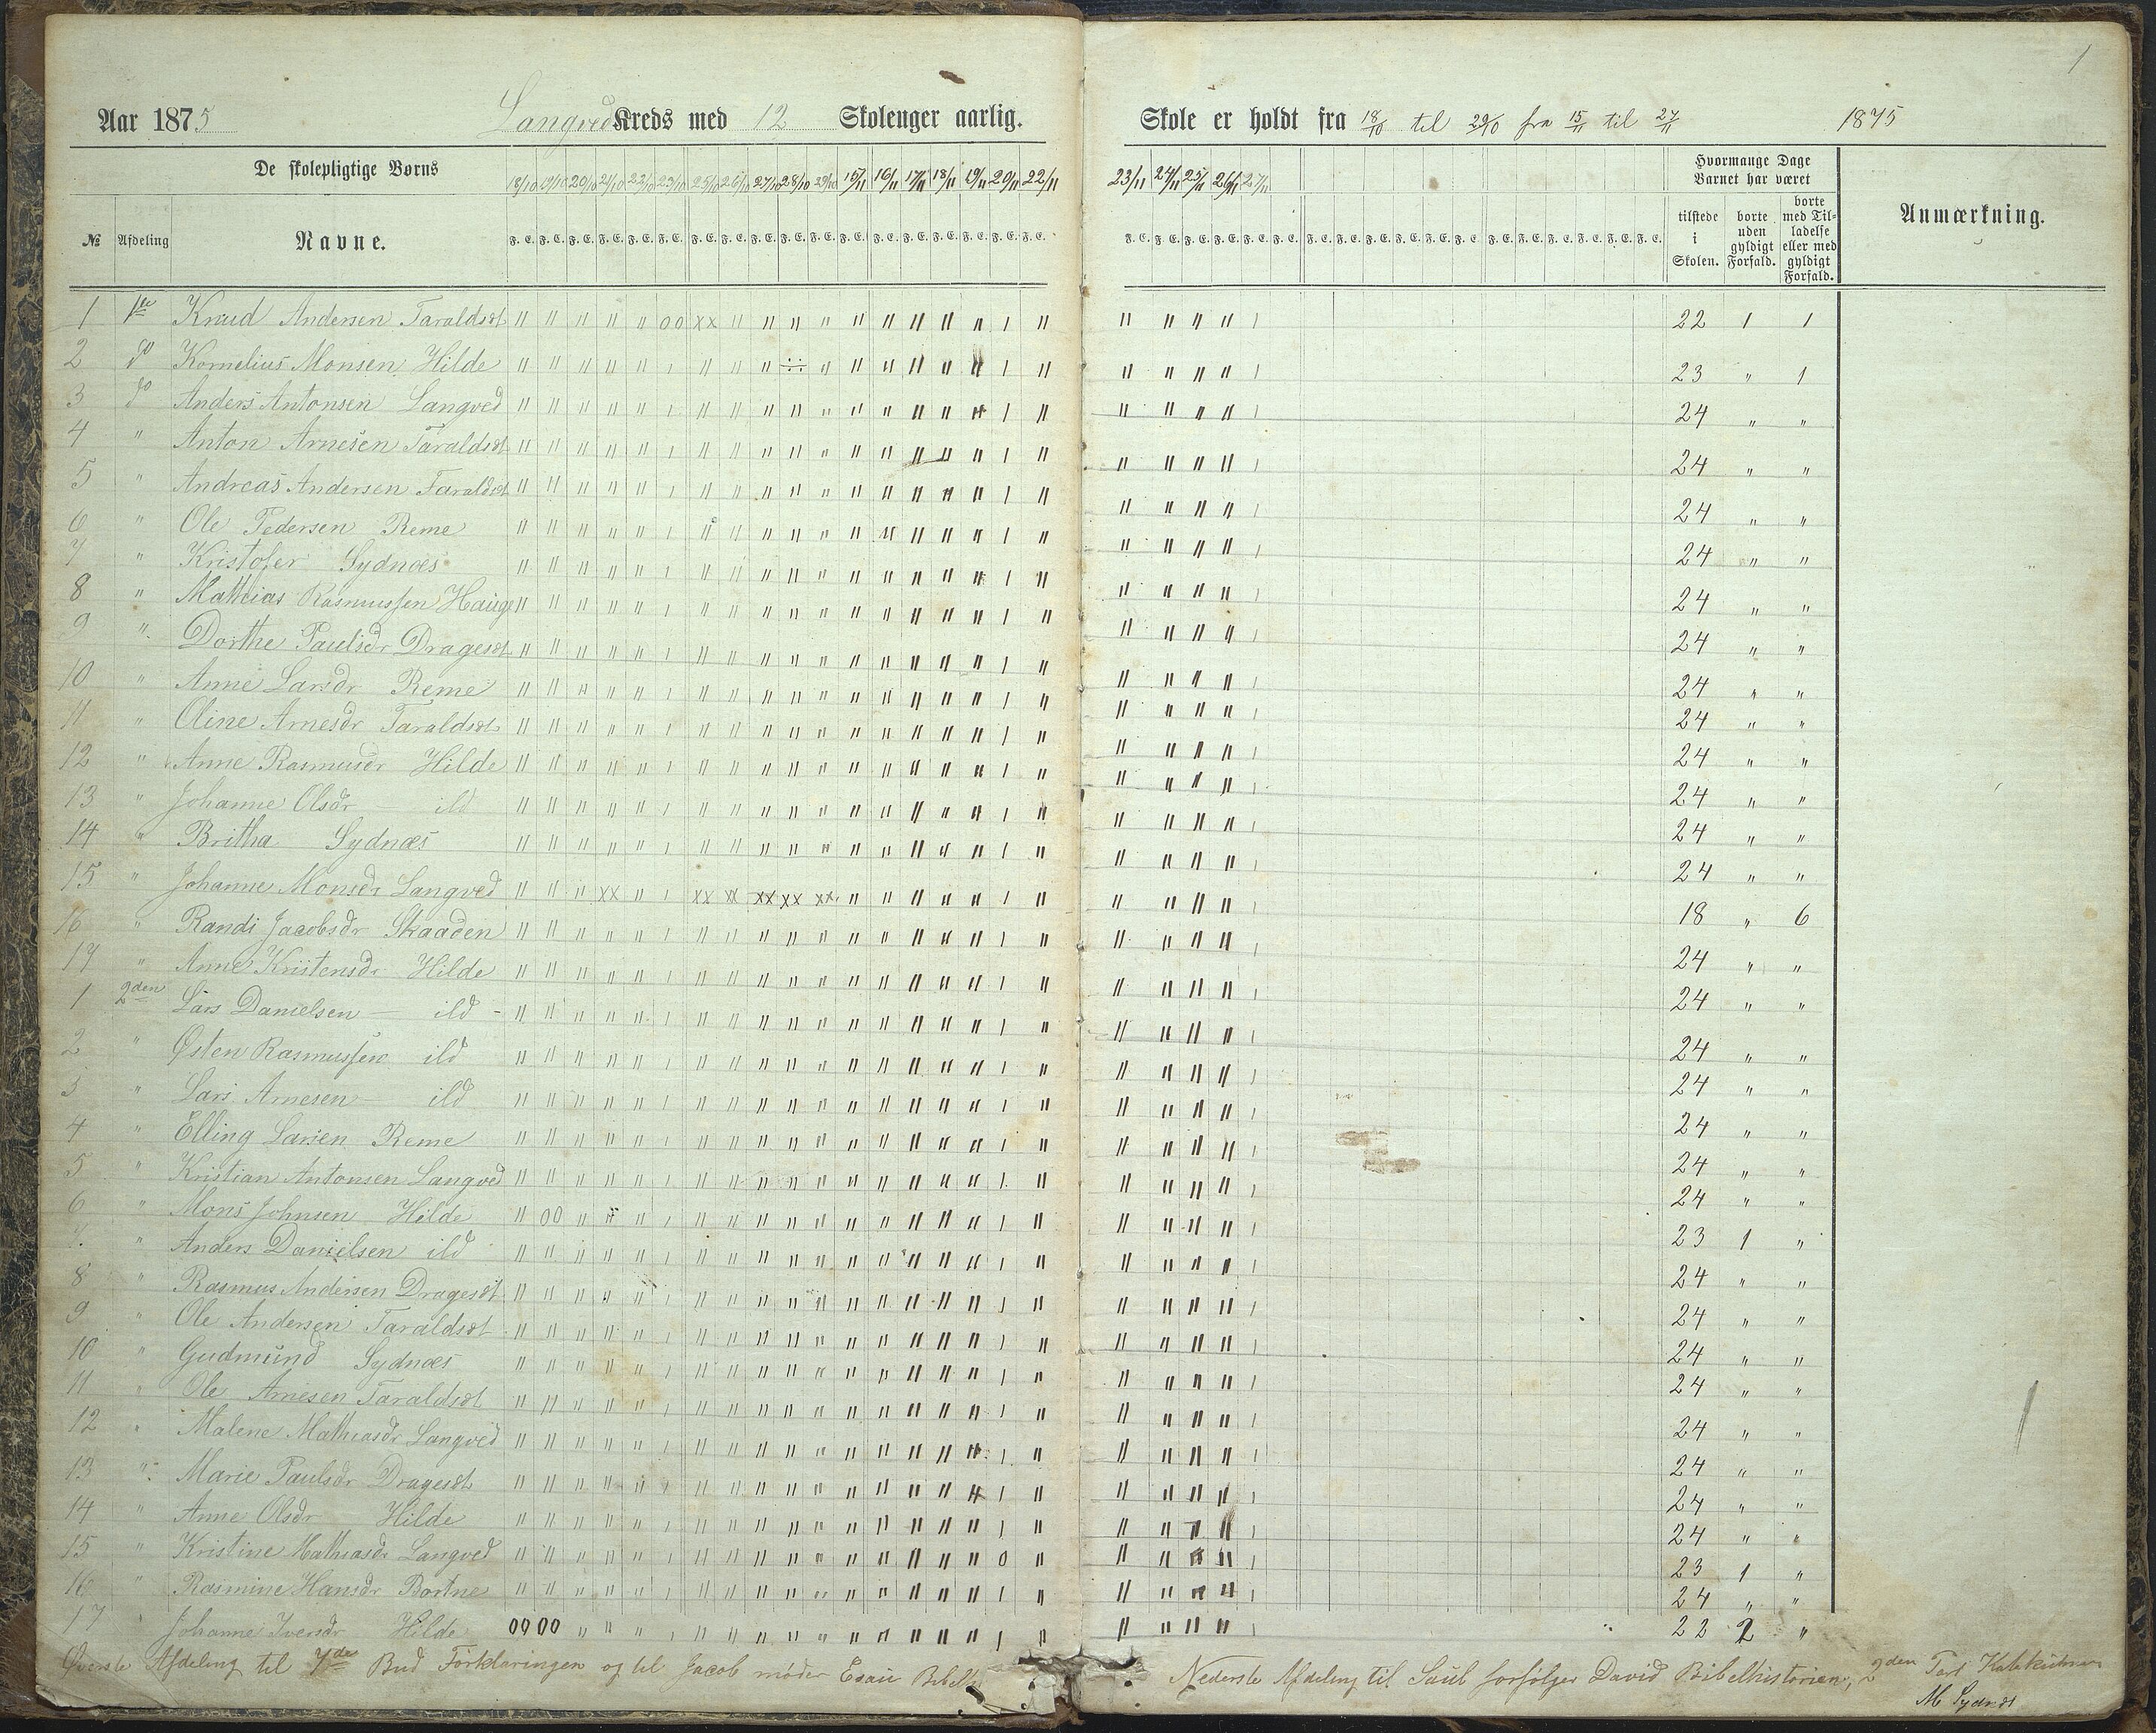 1
Aar 1875 Langved Kreds med 12 Skolenger aarlig. Skole er holdt fra 18/10 til 29/10 fra 15/11 til 27/11 1875
De skolepligtige Børns
18/10 19/10 20/10 21/10 22/10 23/10 25/10 26/10 27/10 28/10 29/10 15/11 16/11 17/11 18/11 19/11 20/11 22/11 23/11 24/11 25/11 26/11 27/11
Hvormange Dage Barnet har været
Anmærkning.
№ Afdeling Navne.
tilstede i Skolen.
borte uden gyldigt Forfald.
borte med Tilladelse eller med gyldigt Forfald.
1 1ste Knud Andersen Taraldset 22 1 1
2 do Kornelius Monsen Hilde 23 " 1
3 do Anders Antonsen Langved 24 " "
4 " Anton Arnesen Taraldset 24 " "
5 " Andreas Andersen Taraldset 24 " "
6 " Ole Pedersen Reme 24 " "
7 " Kristofer Sydnæs 24 " "
8 " Mathias Rasmussen Hauge 24 " "
9 " Dorthe Paulsdr Dragesæt 24 " "
10 " Anne Larsdr Reme 24 " "
11 " Oline Arnesdr Taraldset 24 " "
12 " Anne Rasmusdr Hilde 24 " "
13 " Johanne Olsdr – ild 24 " "
14 " Britha Sydnæs 24 " "
15 " Johanne Monsdr Langved 18 " 6
16 " Randi Jacobsdr Skaaden 24 " "
17 " Anne Kristensdr Hilde 24 " "
1 2den Lars Danielsen – ild - 24 " "
2 " Østen Rasmussen ild 24 " "
3 " Lars Arnesen – ild 24 " "
4 " Elling Larsen Reme 24 " "
5 " Kristian Antonsen Langved 24 " "
6 " Mons Johnsen Hilde 23 1 "
7. " Anders Danielsen ild 24 " "
8 " Rasmus Andersen Dragesæt 24 " "
9 " Ole Andersen Taraldset 24 " "
10 " Gudmund Sydnæs 24 " "
11 " Ole Arnesen Taraldset 24 " "
12 " Malene Mathiasdr Langved 24 " "
13 " Marie Paulsdr Dragesæt 24 " "
14 " Anne Olsdr Hilde 24 " "
15 " Kristine Mathiasdr Langved 23 1 "
16 " Rasmine Hansdr Bortne 24 " "
17 " Johanne Iversdr Hilde 22 2 "
Øverste Afdeling til 7de Bud Forklaringen og til Jacob møder Esau Nederste Afdeling til Saul forfølger David Bibelhistorien, 2den Part
M Sydnæs